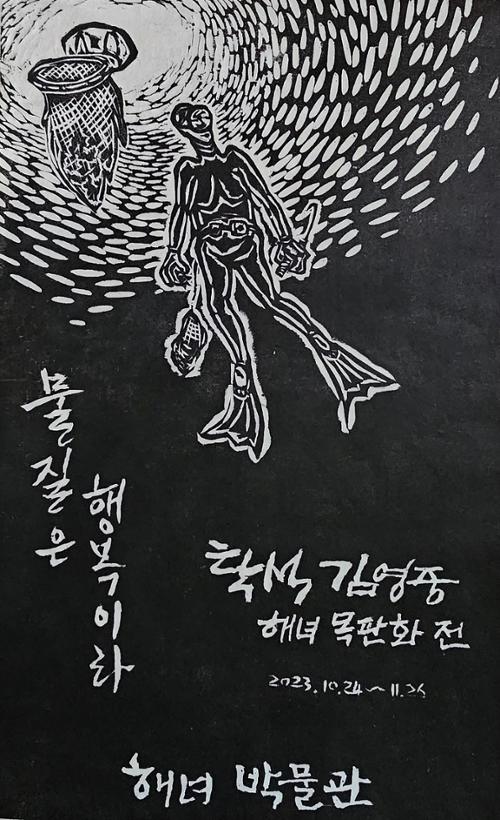 물질은
행복이라
탁석 김영중
해녀 목판화 전
2023.10.24~11.26
해녀 박물관